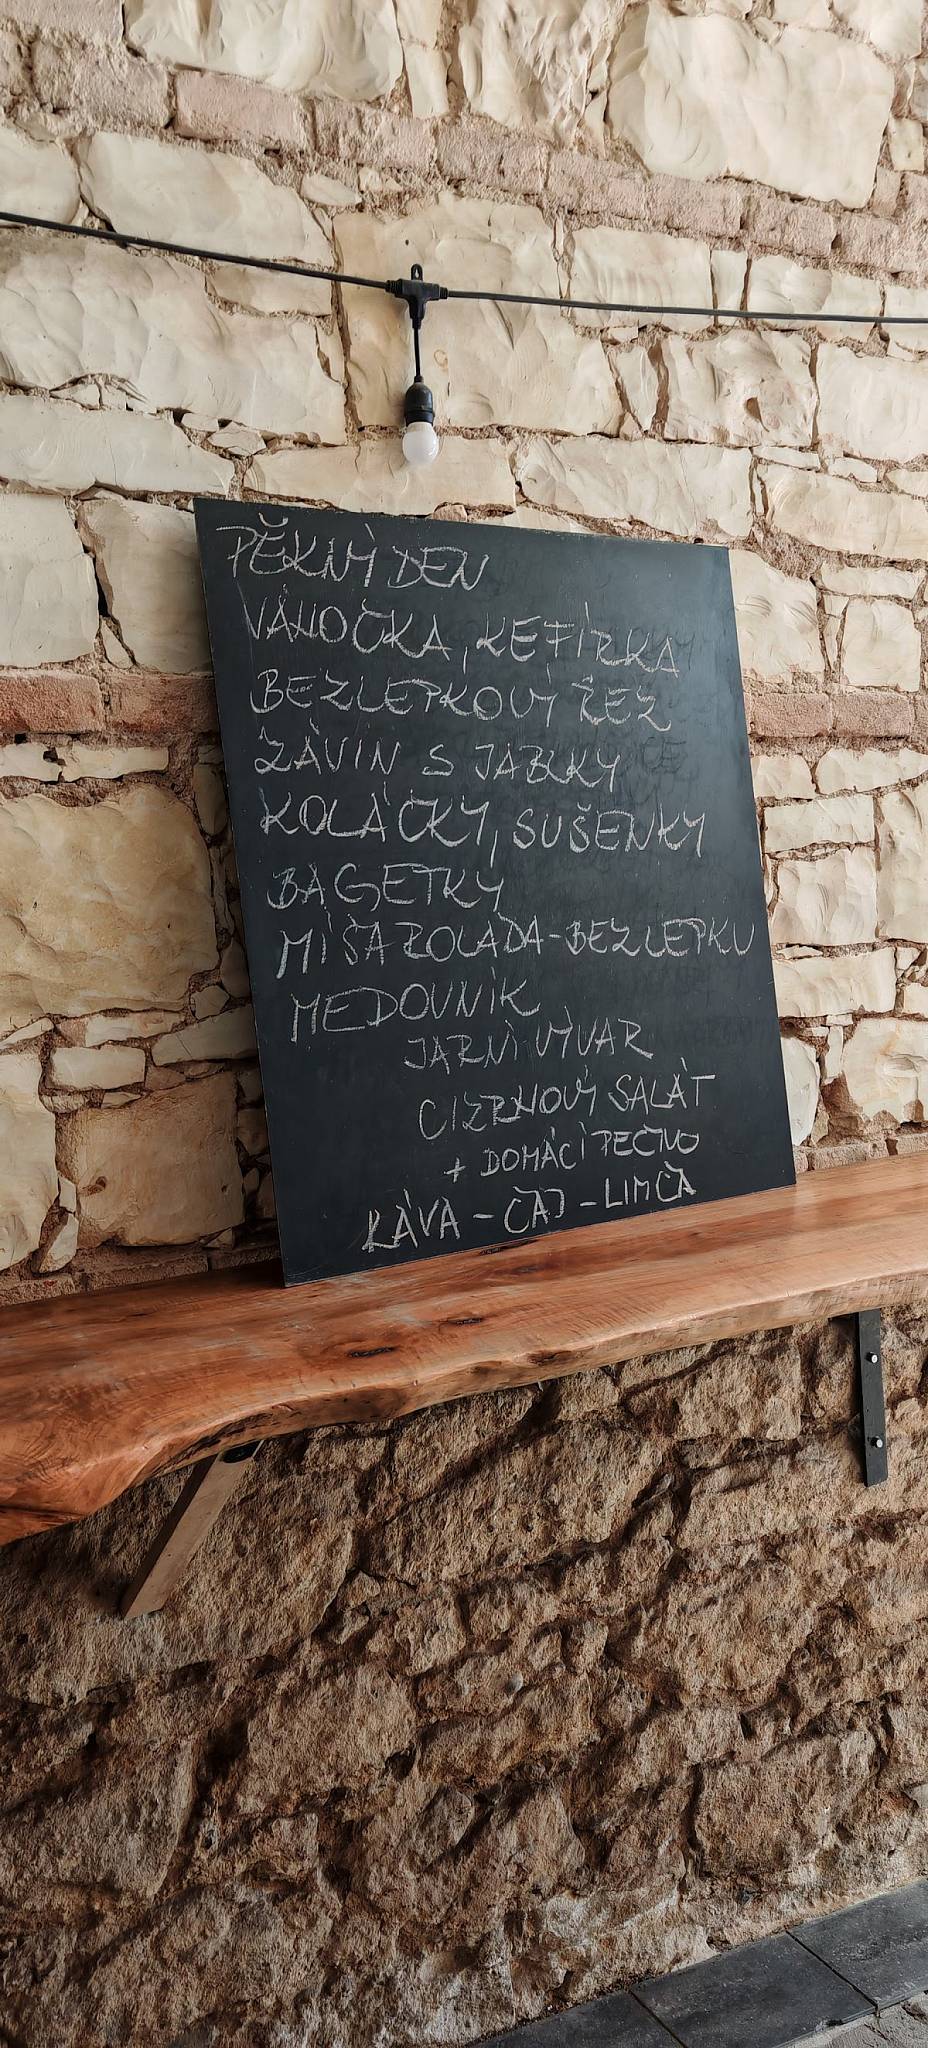 PĚKNÝ DEN
VÁNOČKA, KEFÍRKA
BEZLEPKOVÝ ŘEZ
ZÁVIN S JABLKY
KOLÁČKY, SUŠENKY
BAGETKY
MÍŠA ROLÁDA-BEZ LEPKU
MEDOVNÍK
JARNÍ VÝVAR
CIZRNOVÝ SALÁT
+ DOMÁCÍ PEČIVO
KÁVA - ČAJ - LIMČA